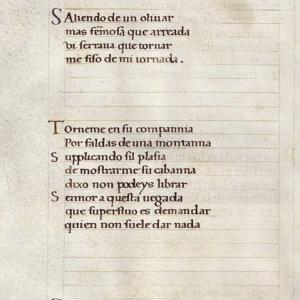 Saliendo de un oliuar
mas fermosa que arreada
vi serrana que tornar
me fiso de mi iornada.
Torneme en su compannia
Por faldas de una montanna
Supplicando sil plasia
de mostrarme su cabanna
dixo non podeys librar
Sennor a questa uegada
que superfluo es demandar
quien non suele dar nada